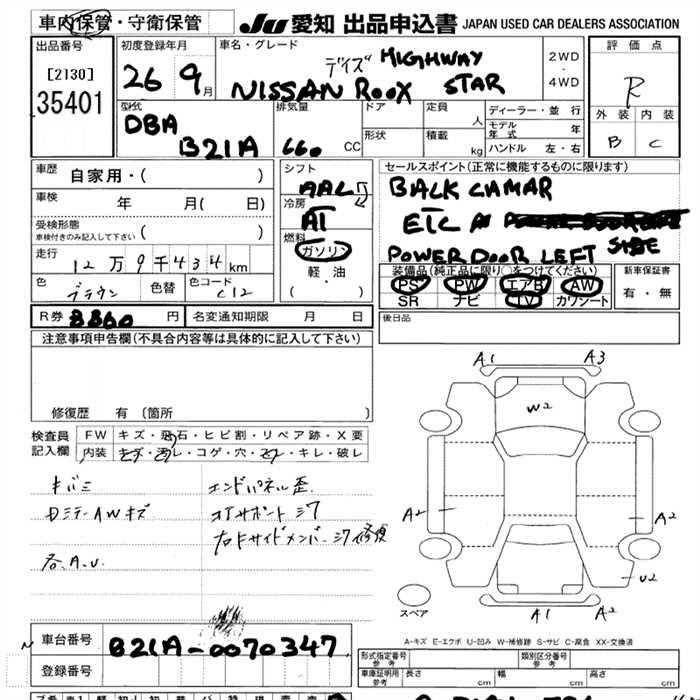 車内保管・守衛保管
JU 愛知 出品申込書 JAPAN USED CAR DEALERS ASSOCIATION
出品番号
[2130]
35401
初度登録年月
26 9月
車名・グレード
デイズ HIGHWAY
NISSAN ROOX STAR
2WD
・
4WD
評価点
R
外装 内装
B C
型式
DBA
B21A
排気量
660 CC
ドア
形状
定員
人
積載
kg
ディーラー・並行
モデル年式 年
ハンドル 左・右
車歴
自家用・( )
車検 年 月( 日)
受検形態
車検付きのみ記入して下さい ( )
走行
12万9千434km
色 ブラウン 色替 色コード C12
シフト
AAC
冷房
AT
燃料
ガソリン
軽・油
( ・ )
セールスポイント(正常に機能するものに限ります)
BACK CAMAR
ETC
POWER DOOR LEFT SIDE
装備品(純正品に限り○をつけてください)
PS PW エアB AW
SR ナビ TV カワシート
新車保証書
有・無
R券 8860 円 名変通知期限 月 日
後日品
注意事項申告欄(不具合内容等は具体的に記入して下さい)
修復歴 有 〔箇所 〕
検査員記入欄
FW キズ・飛石・ヒビ割・リペア跡・X要
内装 キズ・汚レ・コゲ・穴・スレ・キレ・破レ
キバミ
Dミラー AWキズ
各.A.U.
エンドパネル歪
コアサポートシワ
右ドサイドメンバーシワ修復
A1 A3
W2
A2 A2
U2
A1 A2
スペア
A-キズ E-エクボ U-凹み W-補修跡 S-サビ C-腐食 XX-交換済
車台番号 B21A-0070347
登録番号
形式指定番号 参考
類別区分番号 参考
車庫証明用 参考 長さ cm 幅 cm 高さ cm